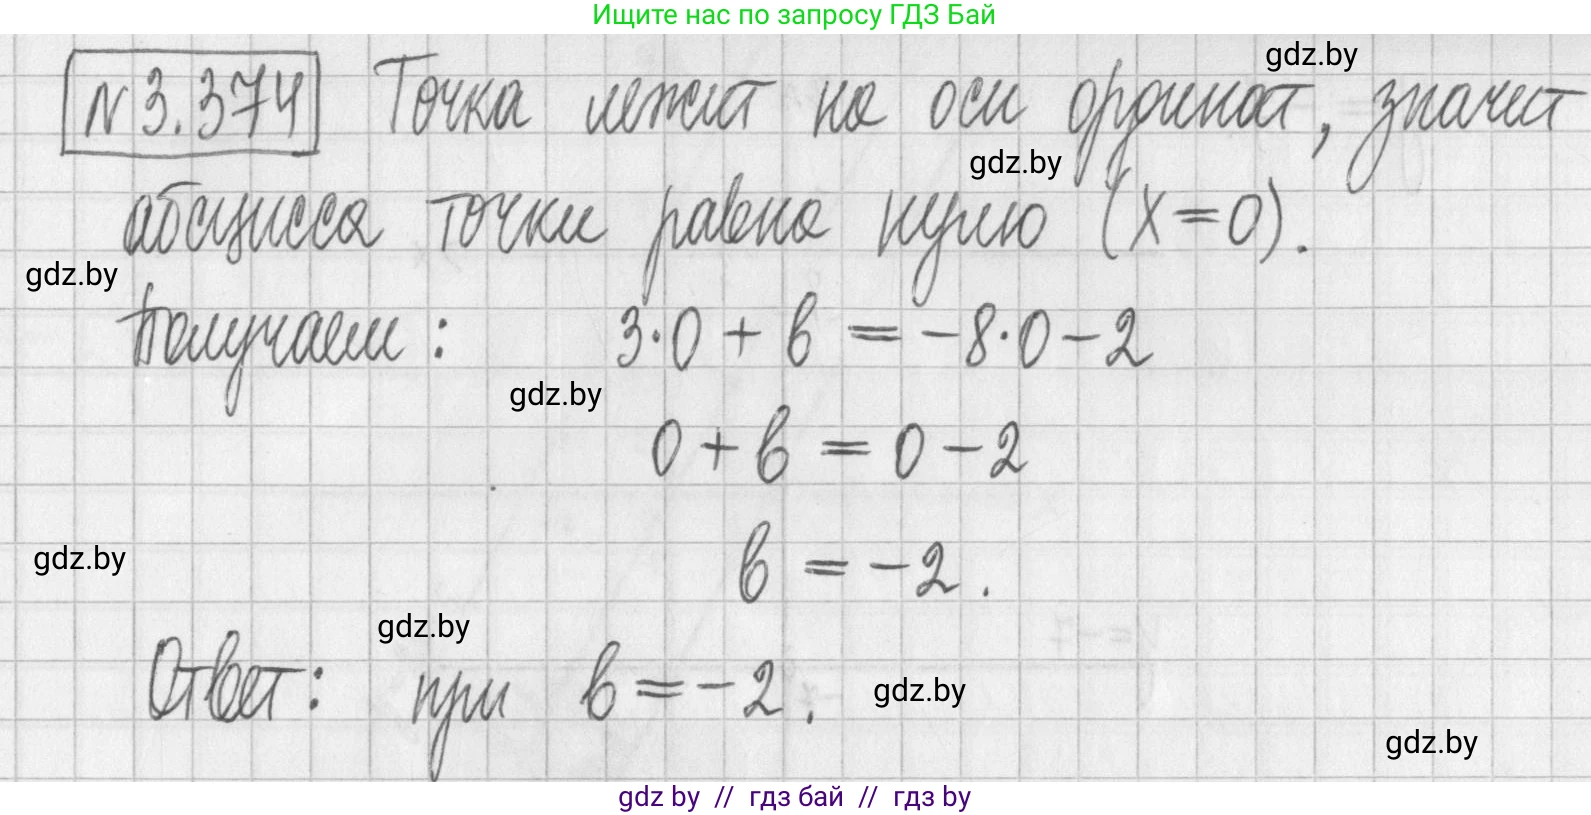 Ищите нас по запросу ГДЗ Бай
gdz.by
N 3.374 Точка лежит на оси ординат, значит
gdz.by
абсцисса точки равна нулю (x=0).
gdz.by
Получаем: 3·0 + b = -8·0 - 2
gdz.by
0 + b = 0 - 2
gdz.by
b = -2.
gdz.by
Ответ: при b = -2.
gdz.by
gdz.by
gdz by // гдз бай // гдз by